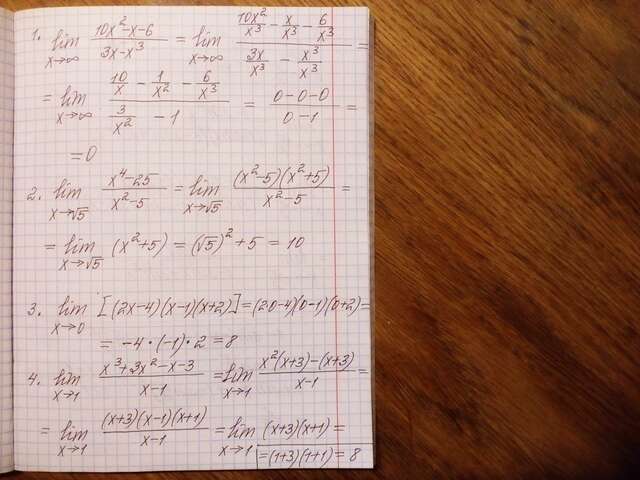 1. lim x→∞ (10x²-x-6)/(3x-x³) = lim x→∞ (10x²/x³ - x/x³ - 6/x³)/(3x/x³ - x³/x³) =
= lim x→∞ (10/x - 1/x² - 6/x³)/(3/x² - 1) = (0-0-0)/(0-1) =
= 0
2. lim x→√5 (x⁴-25)/(x²-5) = lim x→√5 (x²-5)(x²+5)/(x²-5) =
= lim x→√5 (x²+5) = (√5)² + 5 = 10
3. lim x→0 [(2x-4)(x-1)(x+2)] = (2·0-4)(0-1)(0+2) =
= -4·(-1)·2 = 8
4. lim x→1 (x³+3x²-x-3)/(x-1) = lim x→1 (x²(x+3)-(x+3))/(x-1) =
= lim x→1 (x+3)(x-1)(x+1)/(x-1) = lim x→1 (x+3)(x+1) =
= (1+3)(1+1) = 8